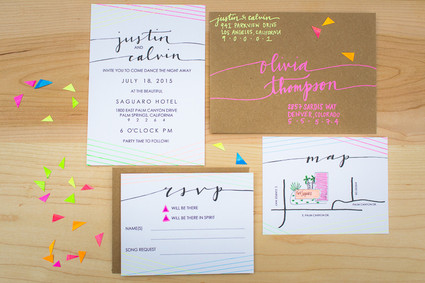 justin
AND
calvin
INVITE YOU TO COME DANCE THE NIGHT AWAY
JULY 18, 2015
AT THE BEAUTIFUL
SAGUARO HOTEL
1800 EAST PALM CANYON DRIVE
PALM SPRINGS, CALIFORNIA
92264
6 O'CLOCK PM
PARTY TIME TO FOLLOW!
justin & calvin
442 PARKVIEW DRIVE
LOS ANGELES, CALIFORNIA
9·0·0·0·1
olivia
thompson
DENVER, COLORADO
rsvp
WILL BE THERE
WILL BE THERE IN SPIRIT
NAME(S)
SONG REQUEST
map